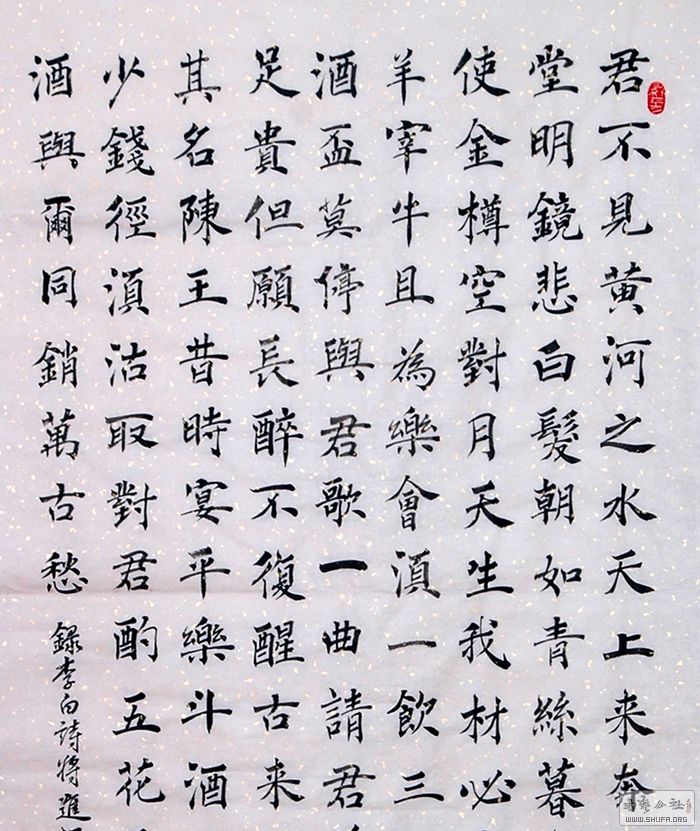 君不見黄河之水天上來奔
堂明鏡悲白髮朝如青絲暮
使金樽空對月天生我材必
羊宰牛且為樂會湏一飲三
酒盃莫停與君歌一曲請君
足貴但願長醉不復醒古來
其名陳王昔時宴平樂斗酒
少錢徑湏沽取對君酌五花
酒與爾同銷萬古愁 録李白詩將進
公社
WWW.SHUFA.ORG